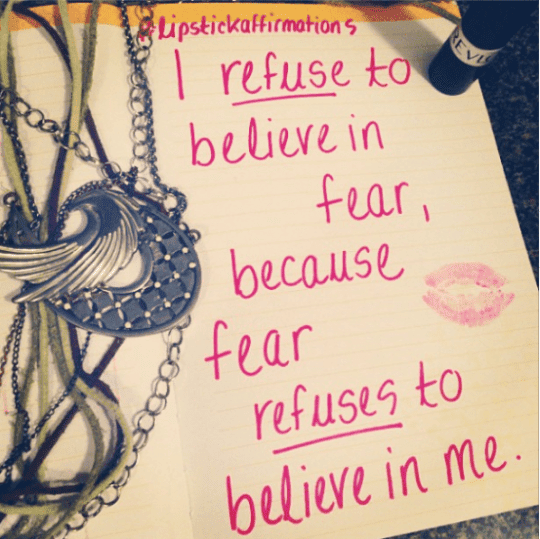 #lipstickaffirmations
I refuse to
believe in
fear,
because
fear
refuses to
believe in me.